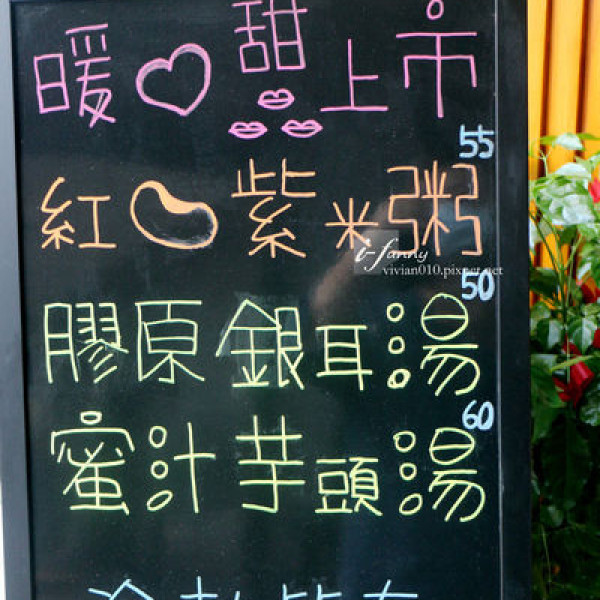 暖♡甜品上市
55
紅豆紫米粥
i-fanny
vivian010.pixnet.net
50
膠原銀耳湯
60
蜜汁芋頭湯